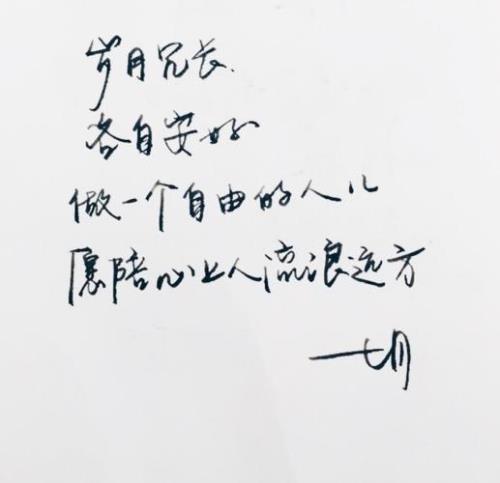 岁月冗长
各自安好
做一个自由的人儿
愿陪心上人流浪远方
七月